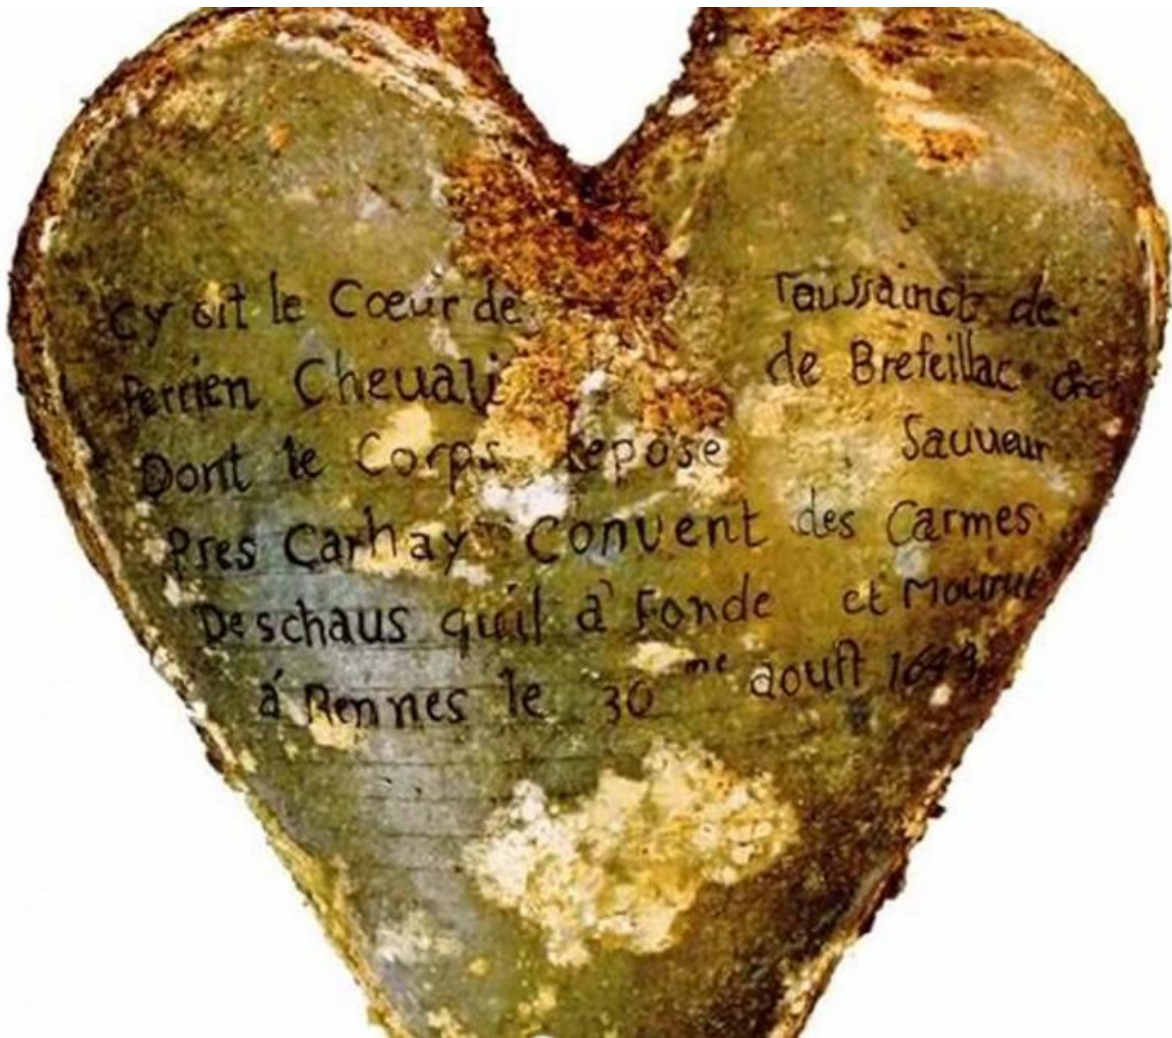 Cy Git le Cœur de Taussainct de
Perrien Cheuali de Brefeillac &c
Dont le Corps Repose Sauueur
Pres Carhay Convent des Carmes
Deschaus quil à Fonde et Mourut
á Rennes le 30me aoust 1649